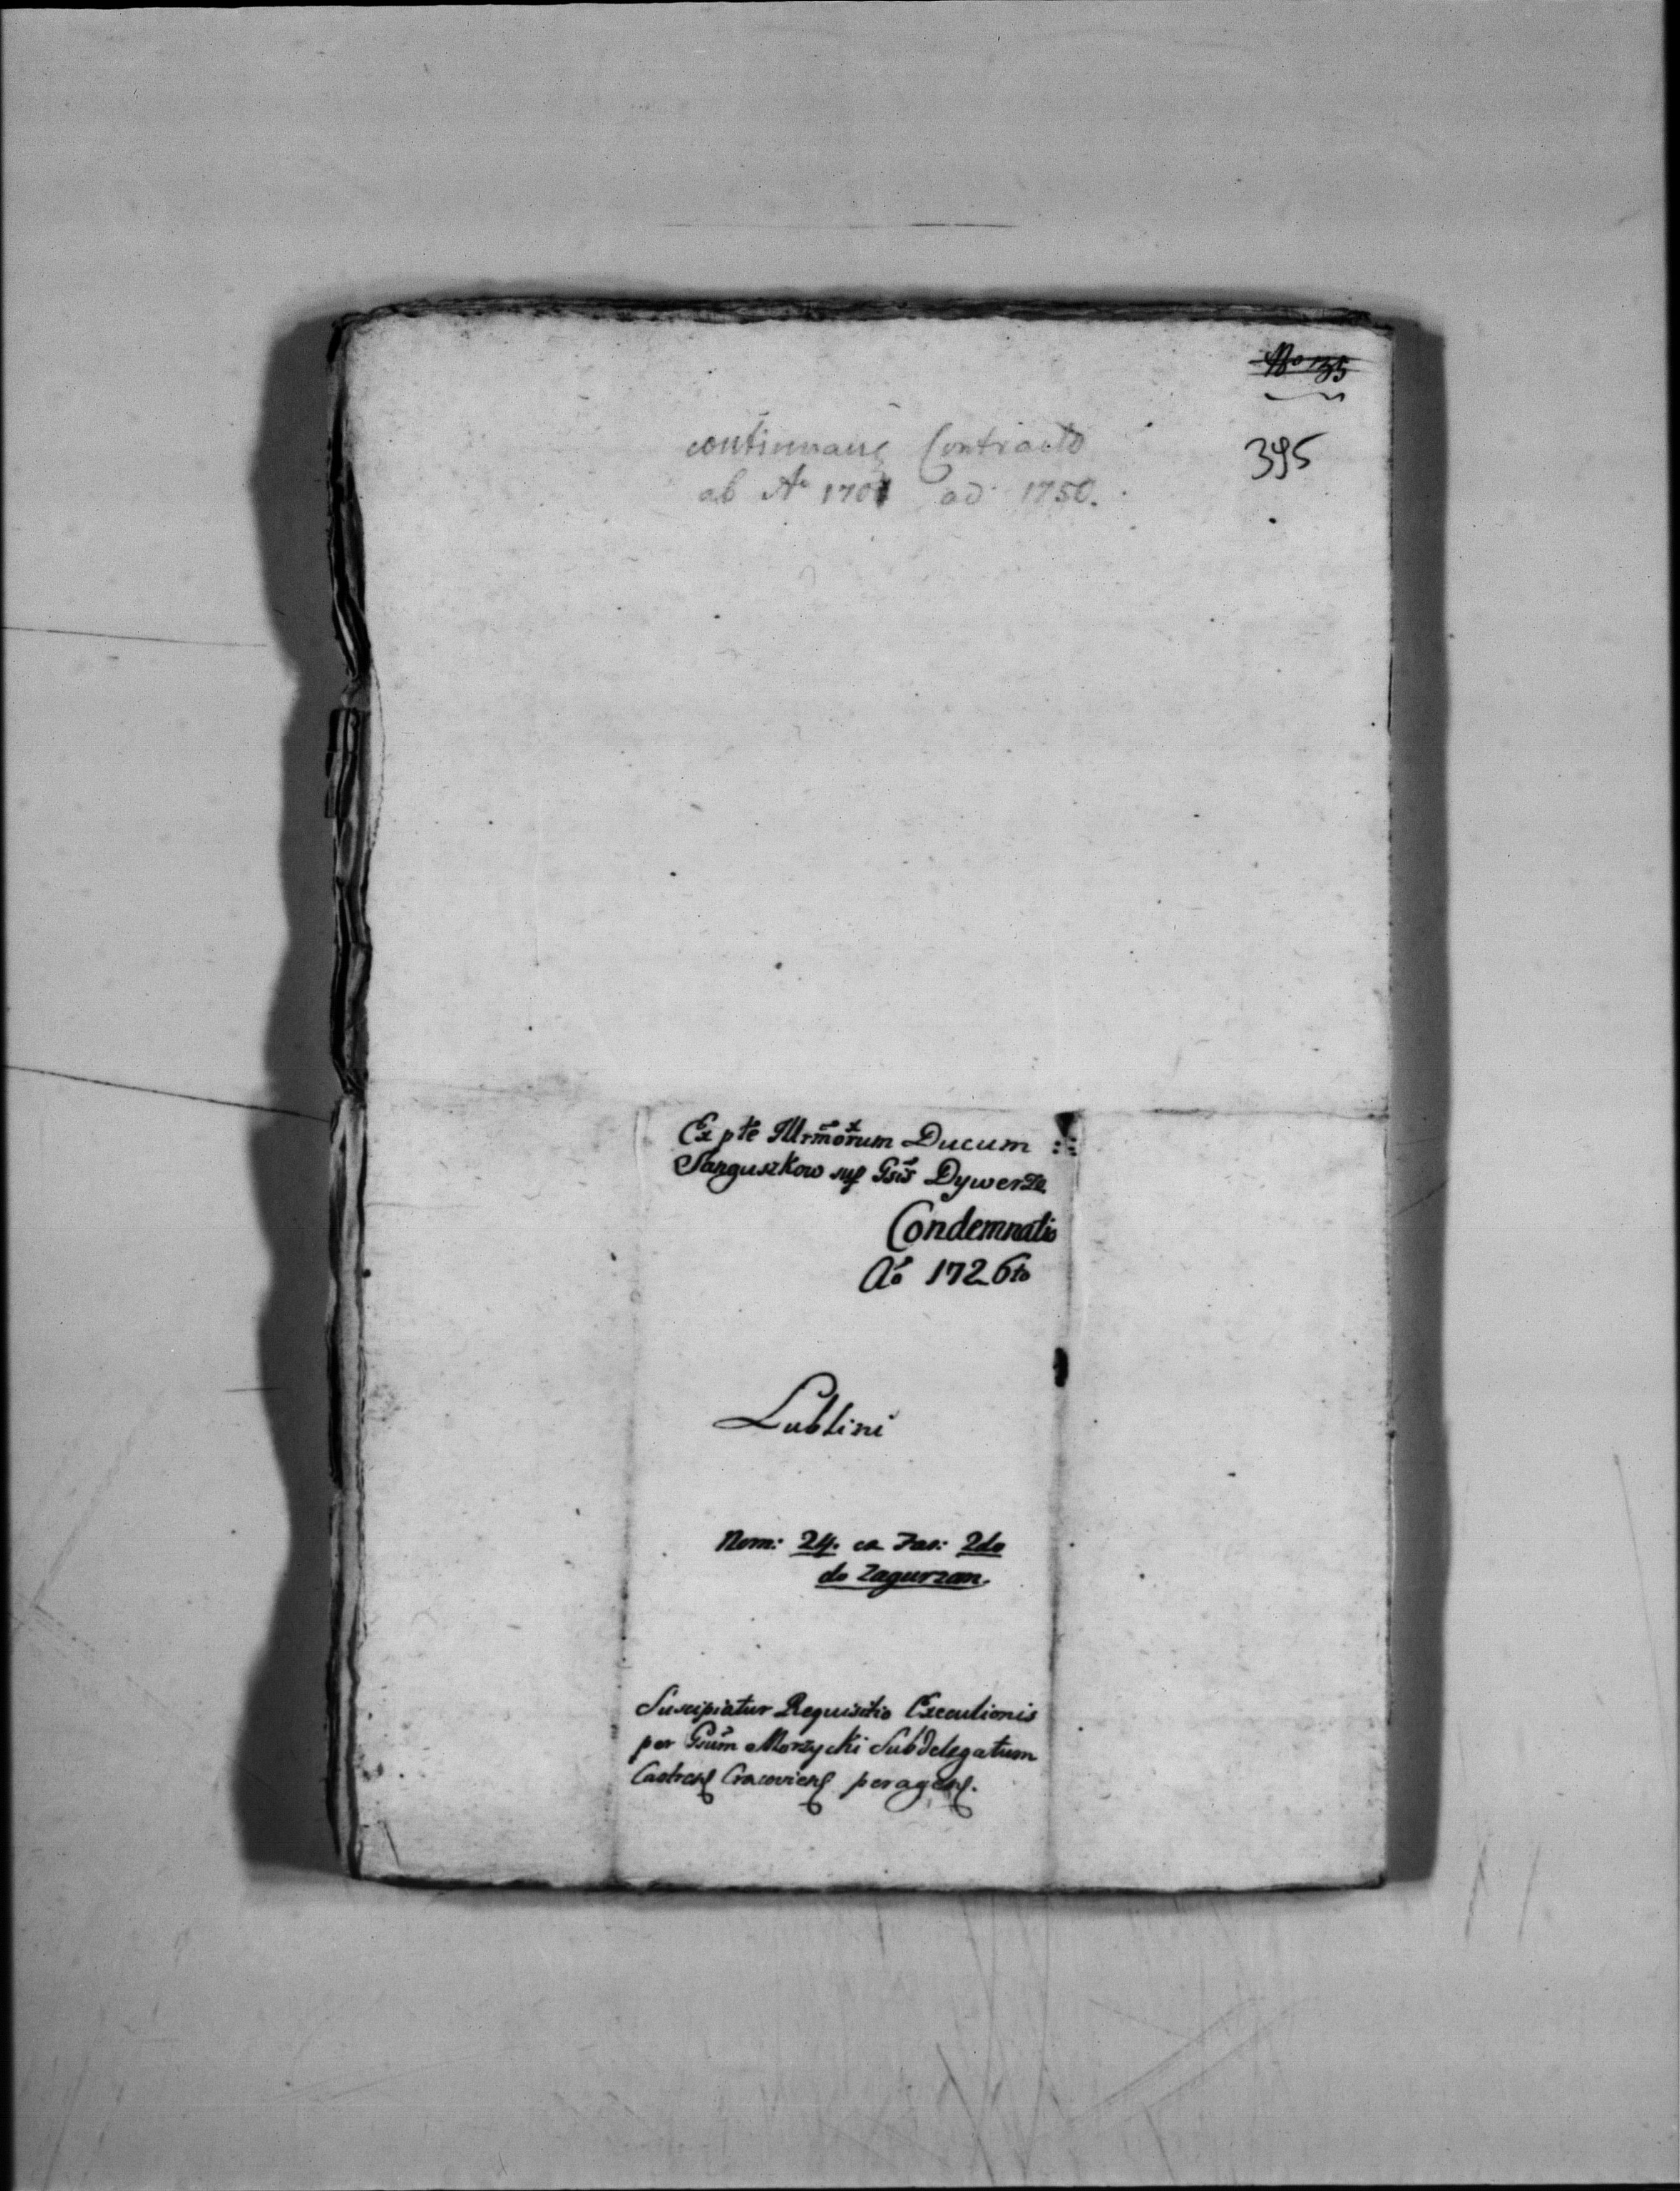 No 135
395
continuans Contracto
ab Ao 1701 ad 1750.
Ex pte Illrmõrum Ducum
Sanguszkow sup Gsis Dywerze
Condemnatio
Ao 1726to
Lublini
Nom: 24. ex Fas: 2do
do Zagurzan.
Suscipiatur Requisitio Executionis
per Gsum Morzycki Subdelegatum
Castrens Cracoviens peragens.